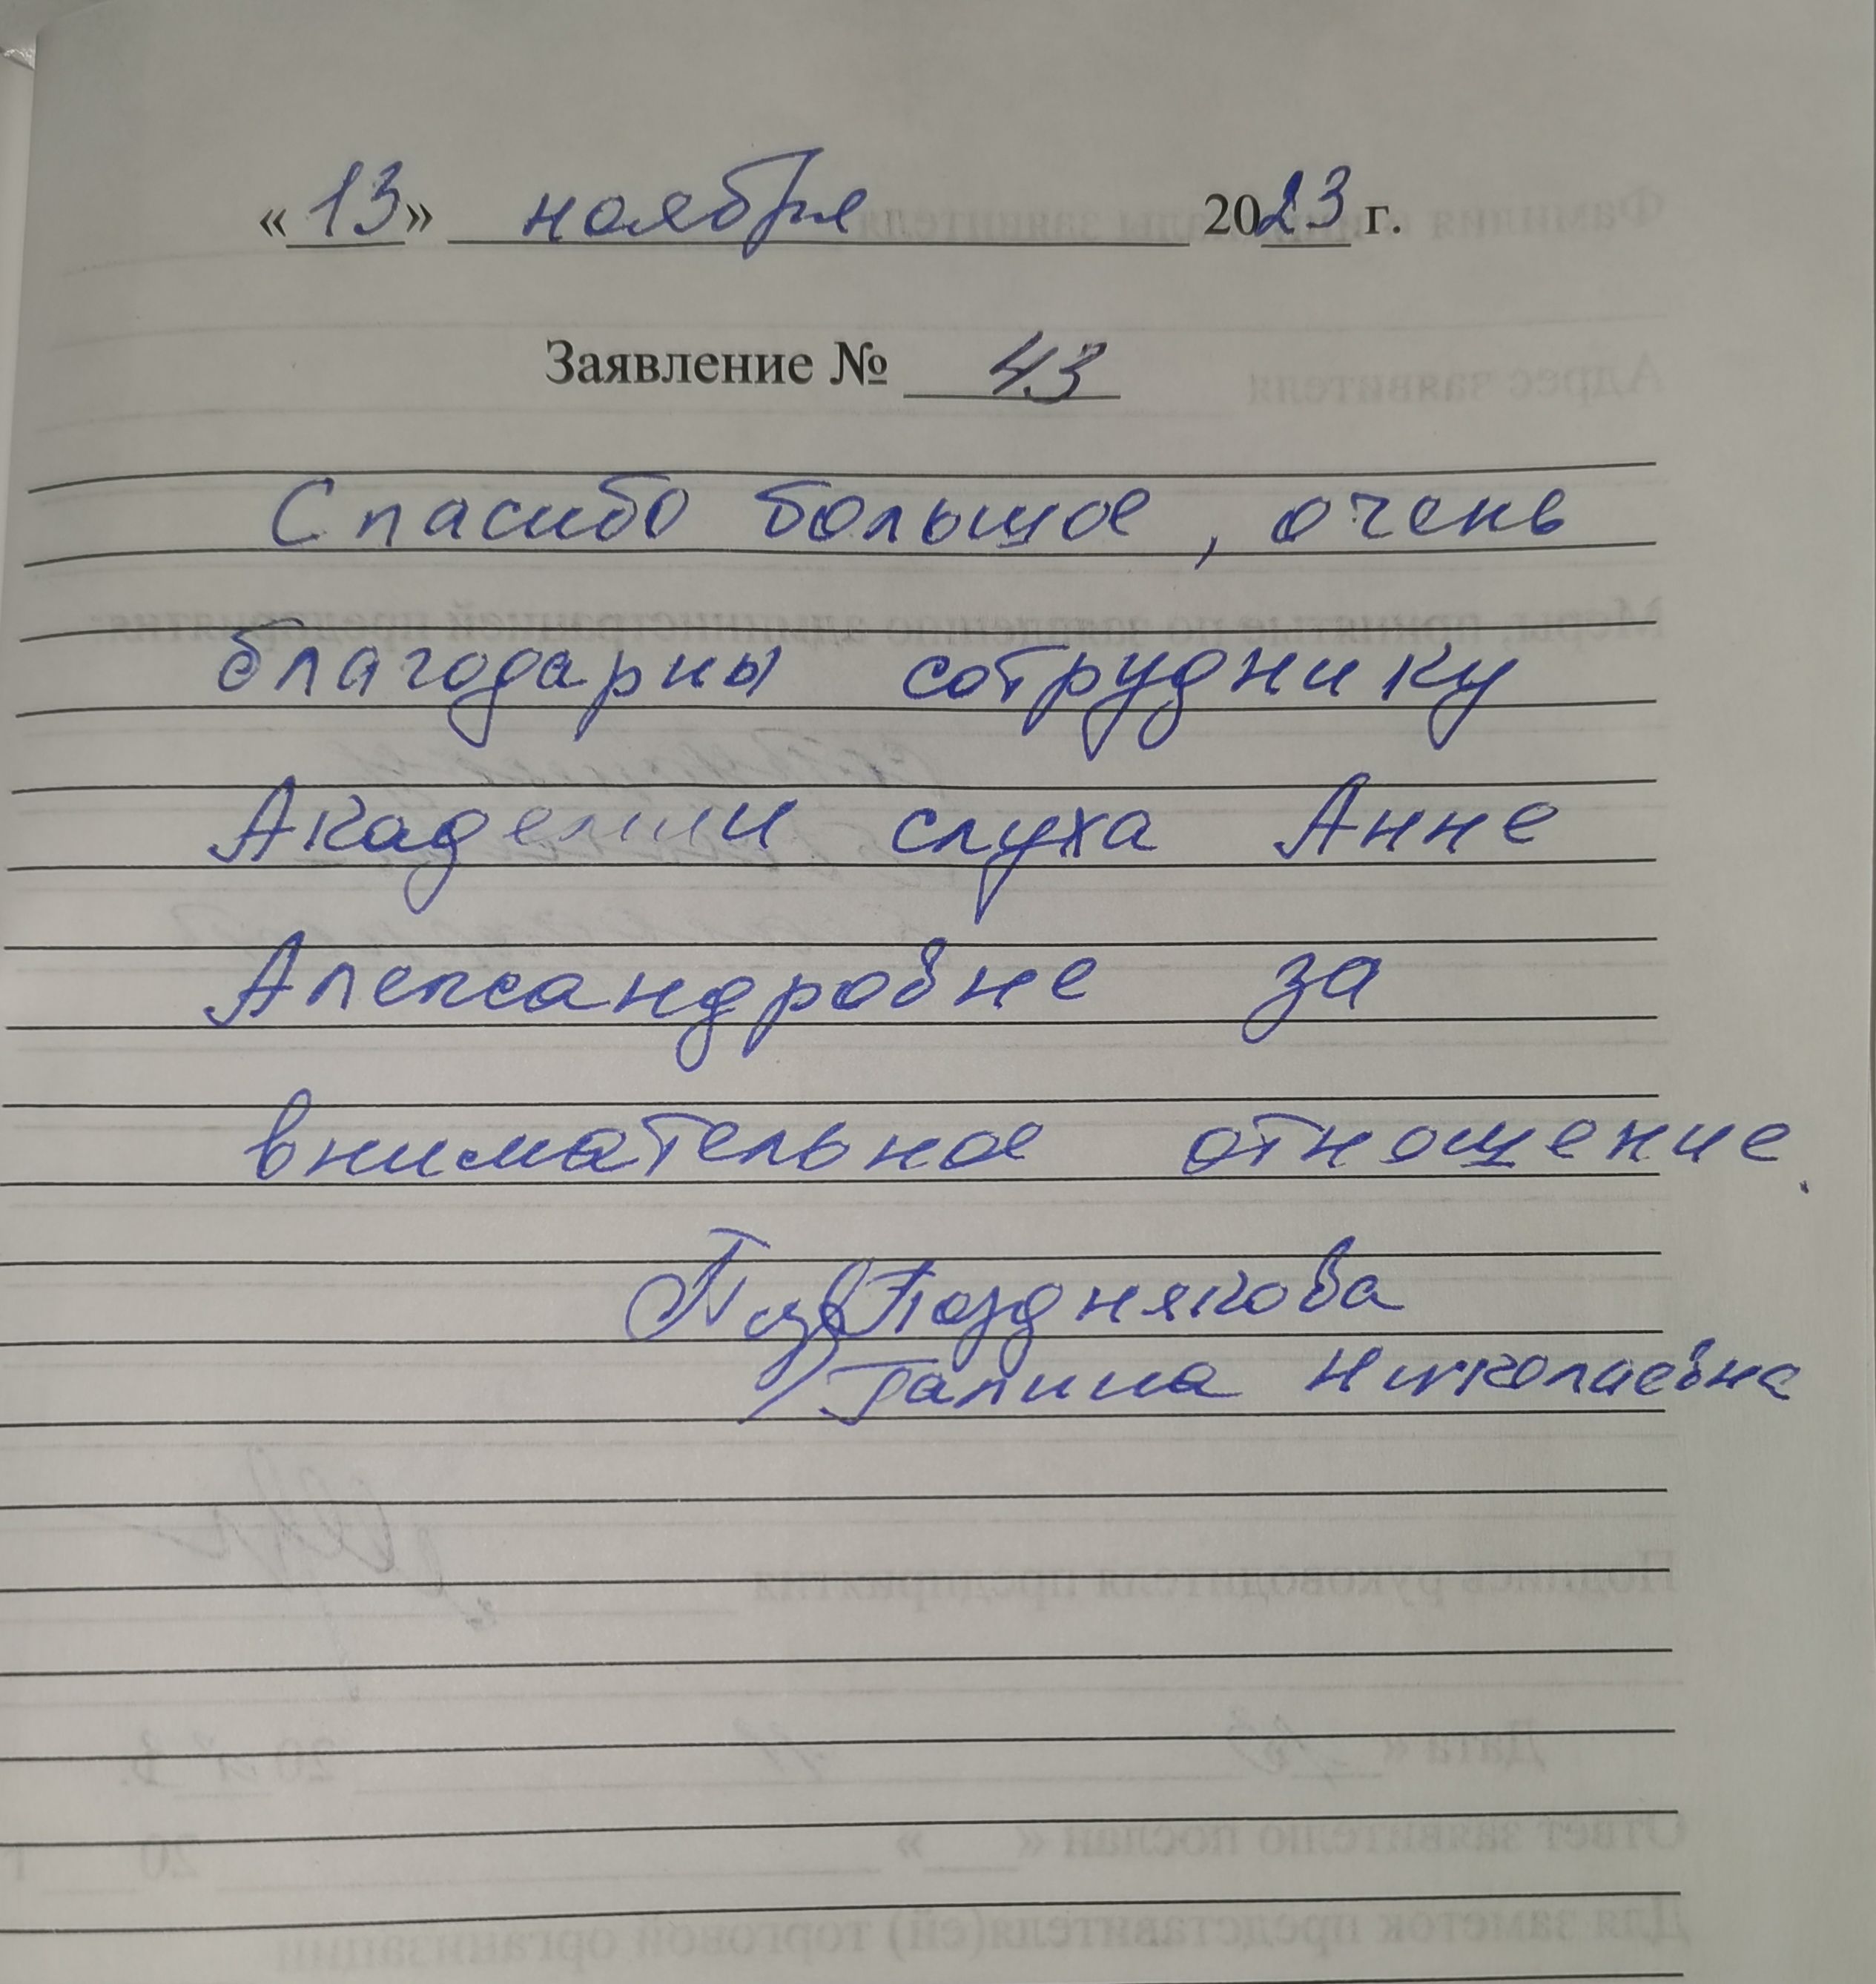 «13» ноября 2023 г.
Заявление № 43
Спасибо большое, очень
благодарны сотруднику
Академии слуха Анне
Александровне за
внимательное отношение.
Позднякова
Галина Николаевна